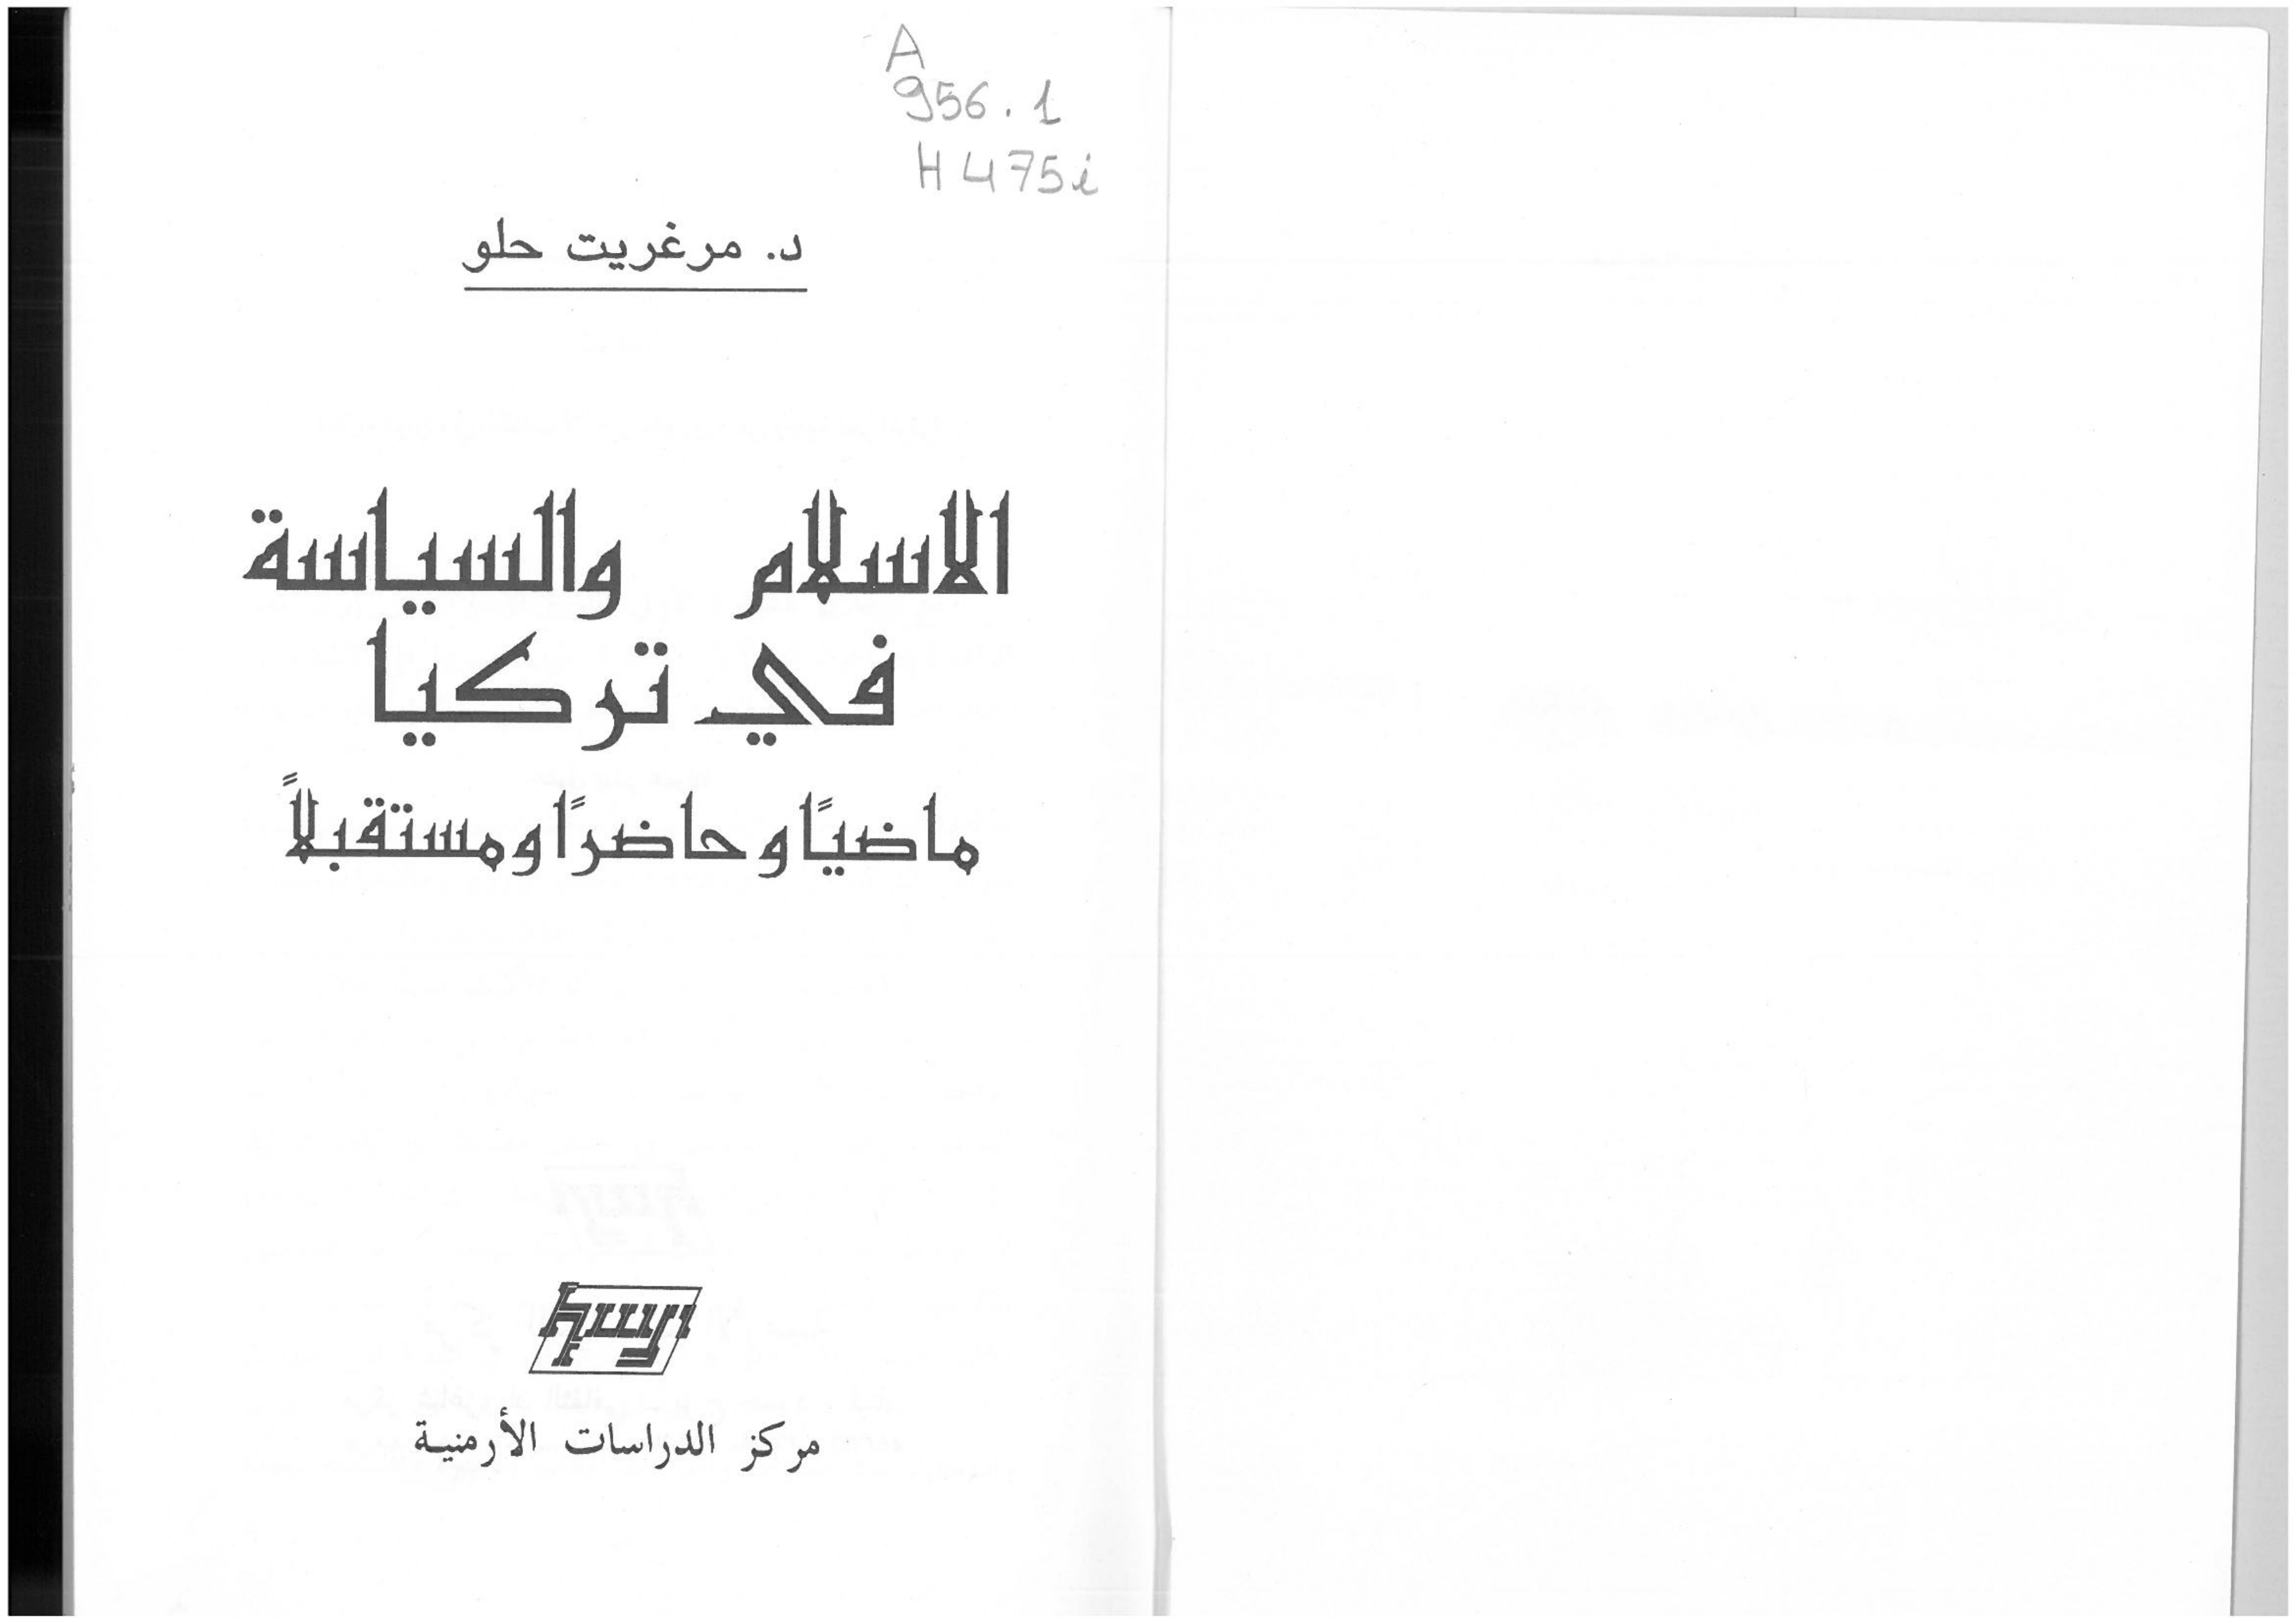 A
956.1
H475i
د. مرغريت حلو
الاسلام والسياسة
في تركيا
ماضيًا وحاضرًا ومستقبلاً
مركز الدراسات الأرمنية